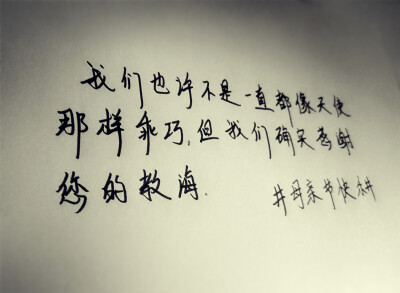 我们也许不是一直都像天使
那样乖巧,但我们确实感谢
您的教海.
#母亲节快乐#